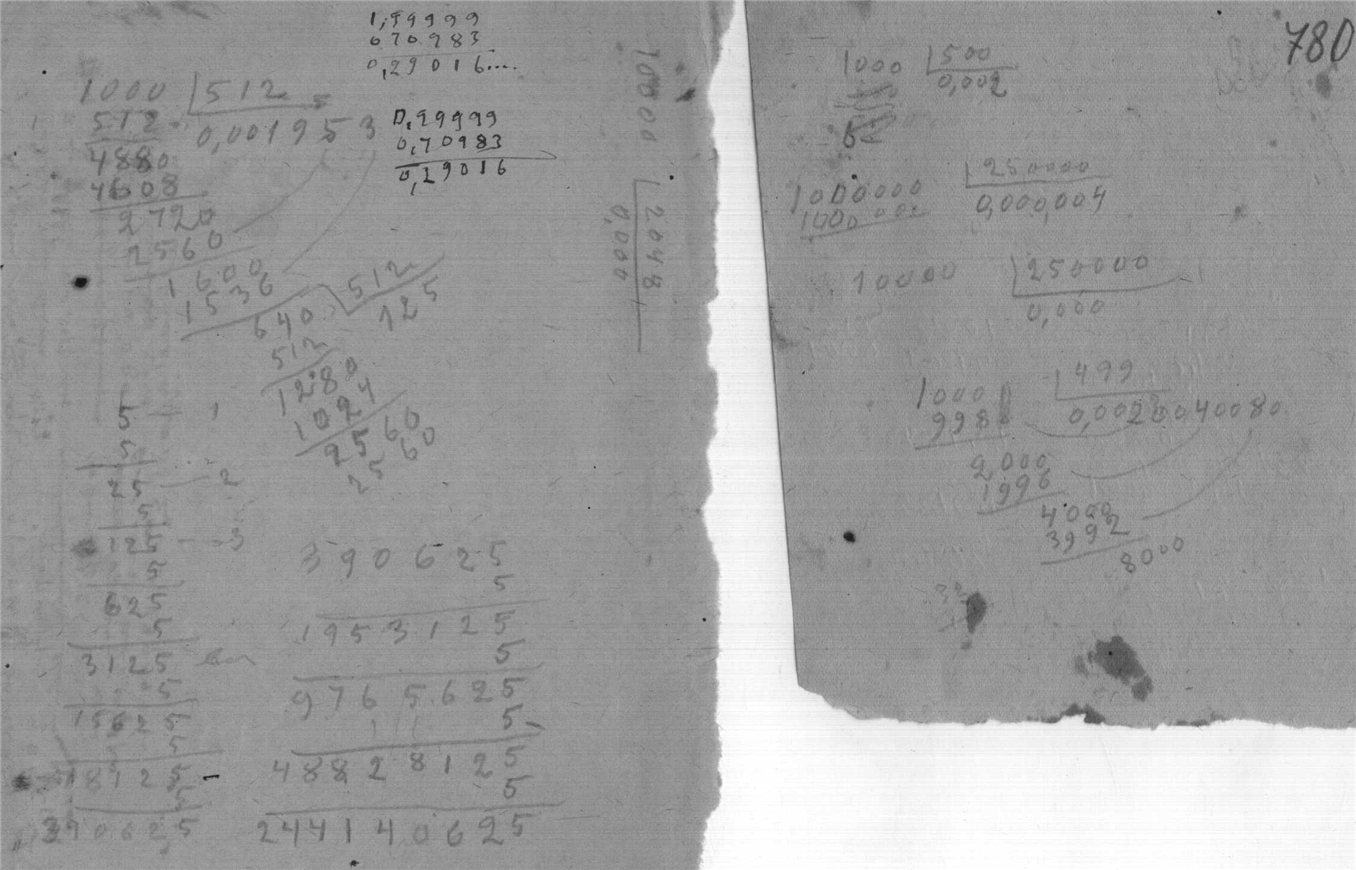 1,99999
070983
0,29016....
1000 512
512 0,001953
4880
4608
2720
2560
1600
1536
640 512
512 125
1280
1024
2560
25 60
0,99999
0,70983
0,29016
10000 2048
0,000
5 — 1
5
25 — 2
5
125 — 3
5
625
5
3125
5
15625
5
78125
5
390625
390625
5
1953125
5
9765625
5
48828125
5
244140625
780
1000 500
0,002
1000000 250000
1000000 0,000,004
10000 250000
0,000
1000 499
998 0,0020040080
2,000
1996
4000
3992
8000